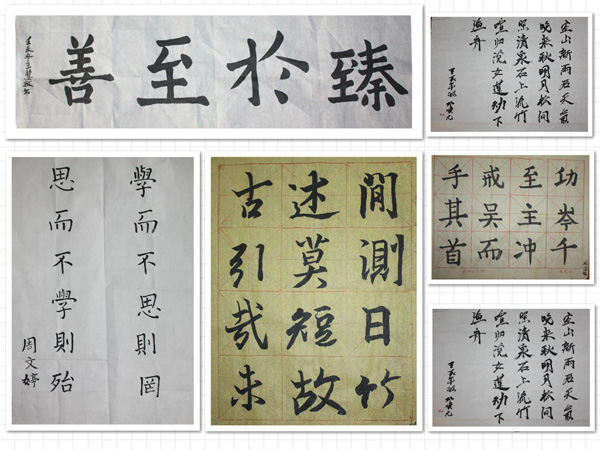 臻於至善
空山新雨后天氣
晚来秋明月松间
照清泉石上流竹
喧归浣女莲动下
渔舟
學而不思則罔
思而不學則殆
周文婷
閒測日竹
述莫短故
古引哉未
功岑千
至主冲
戒吴而
手其首
空山新雨后天氣
晚来秋明月松间
照清泉石上流竹
喧归浣女莲动下
渔舟